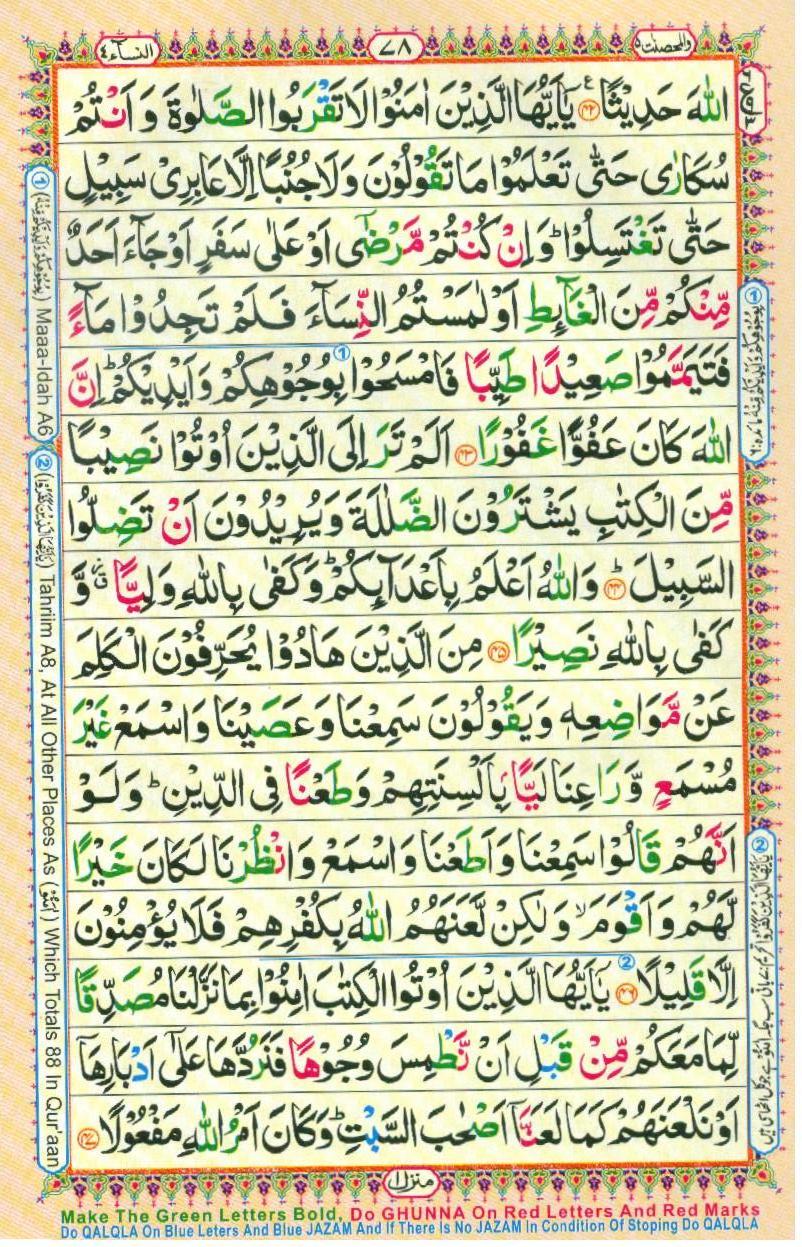 النساء ٤
٧٨
والمحصنت ٥
اللّٰهَ حَدِيْثًا ﴿٤٢﴾ يٰٓاَيُّهَا الَّذِيْنَ اٰمَنُوْا لَا تَقْرَبُوا الصَّلٰوةَ وَ اَنْتُمْ
سُكَارٰى حَتّٰى تَعْلَمُوْا مَا تَقُوْلُوْنَ وَلَا جُنُبًا اِلَّا عَابِرِيْ سَبِيْلٍ
حَتّٰى تَغْتَسِلُوْا ؕ وَ اِنْ كُنْتُمْ مَّرْضٰۤى اَوْ عَلٰى سَفَرٍ اَوْ جَآءَ اَحَدٌ
مِّنْكُمْ مِّنَ الْغَآئِطِ اَوْ لٰمَسْتُمُ النِّسَآءَ فَلَمْ تَجِدُوْا مَآءً
فَتَيَمَّمُوْا صَعِيْدًا طَيِّبًا فَامْسَحُوْا بِوُجُوْهِكُمْ وَ اَيْدِيْكُمْ ؕ اِنَّ
اللّٰهَ كَانَ عَفُوًّا غَفُوْرًا ﴿٤٣﴾ اَلَمْ تَرَ اِلَى الَّذِيْنَ اُوْتُوْا نَصِيْبًا
مِّنَ الْكِتٰبِ يَشْتَرُوْنَ الضَّلٰلَةَ وَيُرِيْدُوْنَ اَنْ تَضِلُّوا
السَّبِيْلَ ﴿٤٤﴾ وَاللّٰهُ اَعْلَمُ بِاَعْدَآئِكُمْ ؕ وَكَفٰى بِاللّٰهِ وَلِيًّا وَّ
كَفٰى بِاللّٰهِ نَصِيْرًا ﴿٤٥﴾ مِنَ الَّذِيْنَ هَادُوْا يُحَرِّفُوْنَ الْكَلِمَ
عَنْ مَّوَاضِعِهٖ وَيَقُوْلُوْنَ سَمِعْنَا وَعَصَيْنَا وَاسْمَعْ غَيْرَ
مُسْمَعٍ وَّرَاعِنَا لَيًّۢا بِاَلْسِنَتِهِمْ وَطَعْنًا فِي الدِّيْنِ ؕ وَلَوْ
اَنَّهُمْ قَالُوْا سَمِعْنَا وَاَطَعْنَا وَاسْمَعْ وَانْظُرْنَا لَكَانَ خَيْرًا
لَّهُمْ وَاَقْوَمَ ۙ وَلٰكِنْ لَّعَنَهُمُ اللّٰهُ بِكُفْرِهِمْ فَلَا يُؤْمِنُوْنَ
اِلَّا قَلِيْلًا ﴿٤٦﴾ يٰٓاَيُّهَا الَّذِيْنَ اُوْتُوا الْكِتٰبَ اٰمِنُوْا بِمَا نَزَّلْنَا مُصَدِّقًا
لِّمَا مَعَكُمْ مِّنْ قَبْلِ اَنْ نَّطْمِسَ وُجُوْهًا فَنَرُدَّهَا عَلٰۤى اَدْبَارِهَاۤ
اَوْ نَلْعَنَهُمْ كَمَا لَعَنَّاۤ اَصْحٰبَ السَّبْتِ ؕ وَكَانَ اَمْرُ اللّٰهِ مَفْعُوْلًا ﴿٤٧﴾
منزل ١
① Maaa-Idah A6
② (يٰٓاَيُّهَا الَّذِيْنَ كَفَرُوْا) Tahriim A8, At All Other Places As (اٰمَنُوْا) Which Totals 88 In Qur'aan
Make The Green Letters Bold, Do GHUNNA On Red Letters And Red Marks
Do QALQLA On Blue Leters And Blue JAZAM And If There Is No JAZAM In Condition Of Stoping Do QALQLA